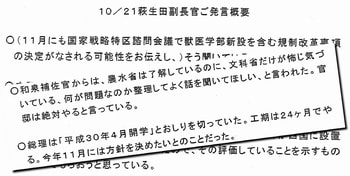 10/21萩生田副長官ご発言概要
○(11月にも国家戦略特区諮問会議で獣医学部新設を含む規制改革事項
の決定がなされる可能性をお伝えし、)そう聞いている。
○和泉補佐官からは、農水省は了解しているのに、文科省だけが怖じ気づ
いている、何が問題なのか整理してよく話を聞いてほしい、と言われた。官
邸は絶対やると言っている。
○総理は「平成30年4月開学」とおしりを切っていた。工期は24ヶ月でや
る。今年11月には方針を決めたいとのことだった。
に設置
、その評価していることを示すもの
と思っている。